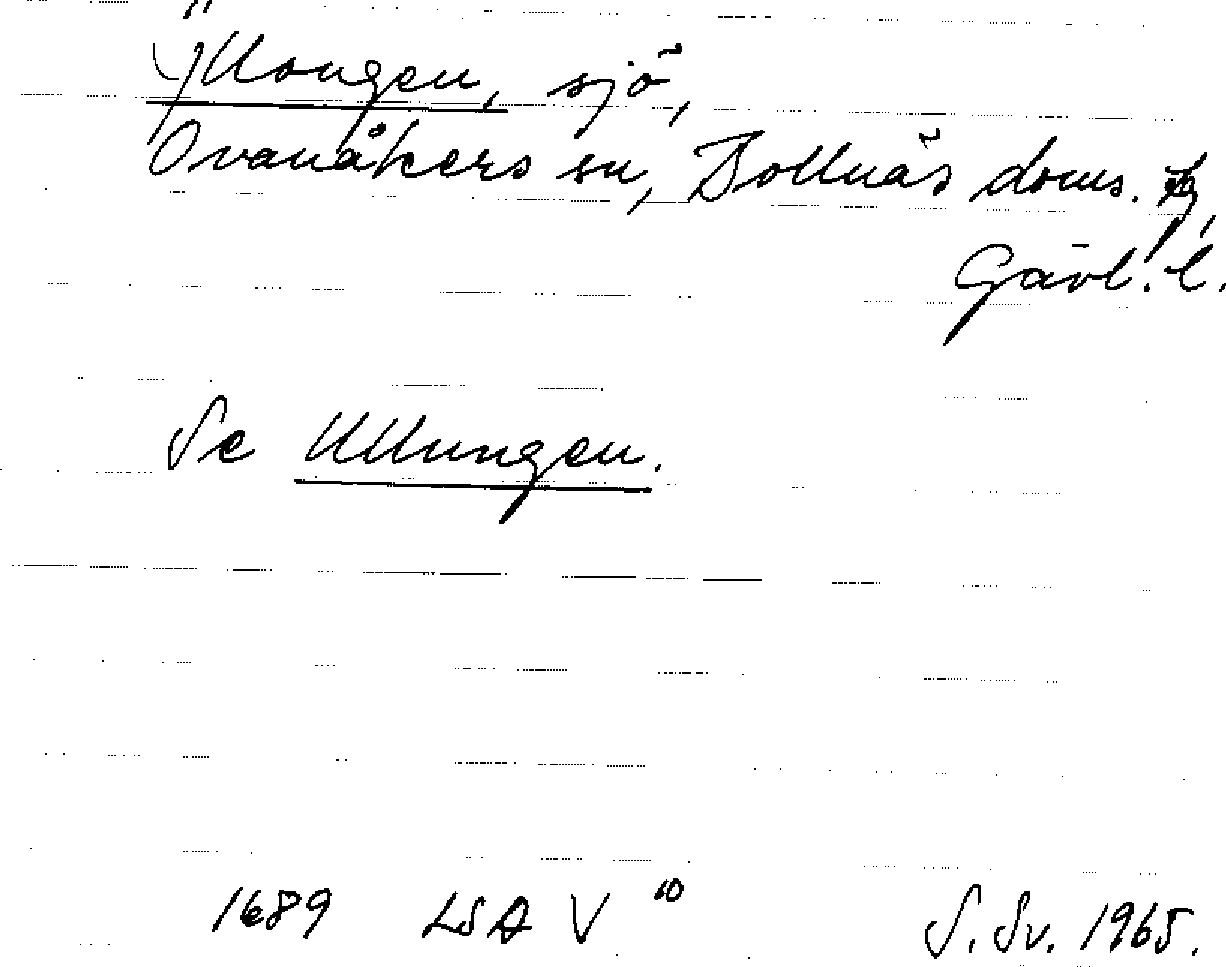 Ÿllongen, sjö,
Ovanåkers sn, Bollnäs doms.
Gävl. l.
Se Ullungen.
1689 LSA V 10 S. Sv. 1965.